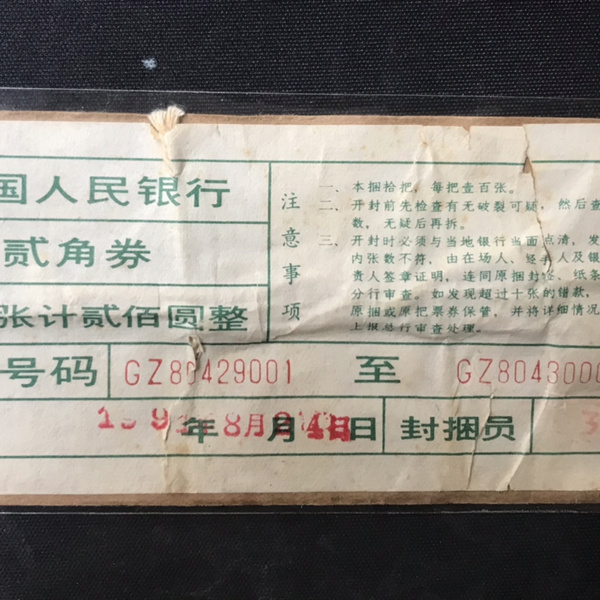 国人民银行
贰角券
张计贰佰圆整
注意事项
一、本捆拾把，每把壹百张。
二、开封前先检查有无破裂可疑，然后查
数，无疑后再拆。
三、开封时必须与当地银行当面点清，发
内张数不符，由在场人、经手人及银
责人签章证明，连同原捆封签、纸条
分行审查。如发现超过十张的错款，
原捆或原把票券保管，并将详细情况
上报总行审查处理。
号码 GZ80429001 至 GZ8043000
年8月 月 日 封捆员